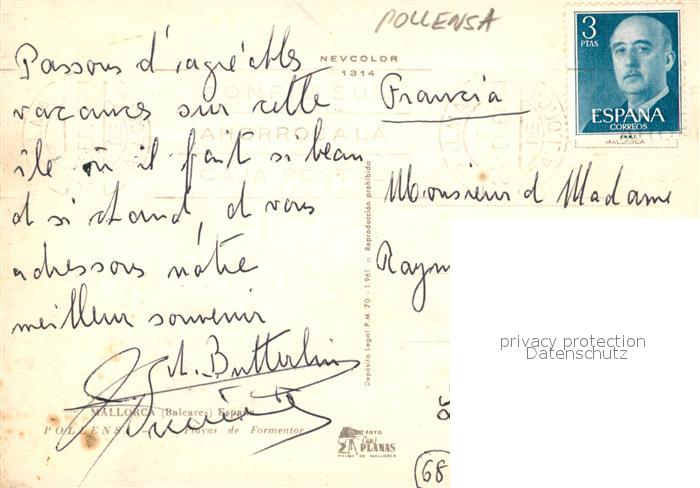 POLLENSA
NEVCOLOR
1314
3
PTAS
ESPAÑA
CORREOS
F.N.M.T.
MALLORCA
AHORRO
CAJA POSTAL
Passons d'agréables
vacances sur cette
île où il fait si beau
et si chaud, et vous
adressons notre
meilleur souvenir
Butterlin
Francia
Monsieur et Madame
Raym
Depósito Legal P.M. 70 - 1.961 :: Reproducción prohibido
MALLORCA (Baleares) España
POLLENSA Playas de Formentor
FOTO
PLANAS
PALMA DE MALLORCA
68
privacy protection
Datenschutz